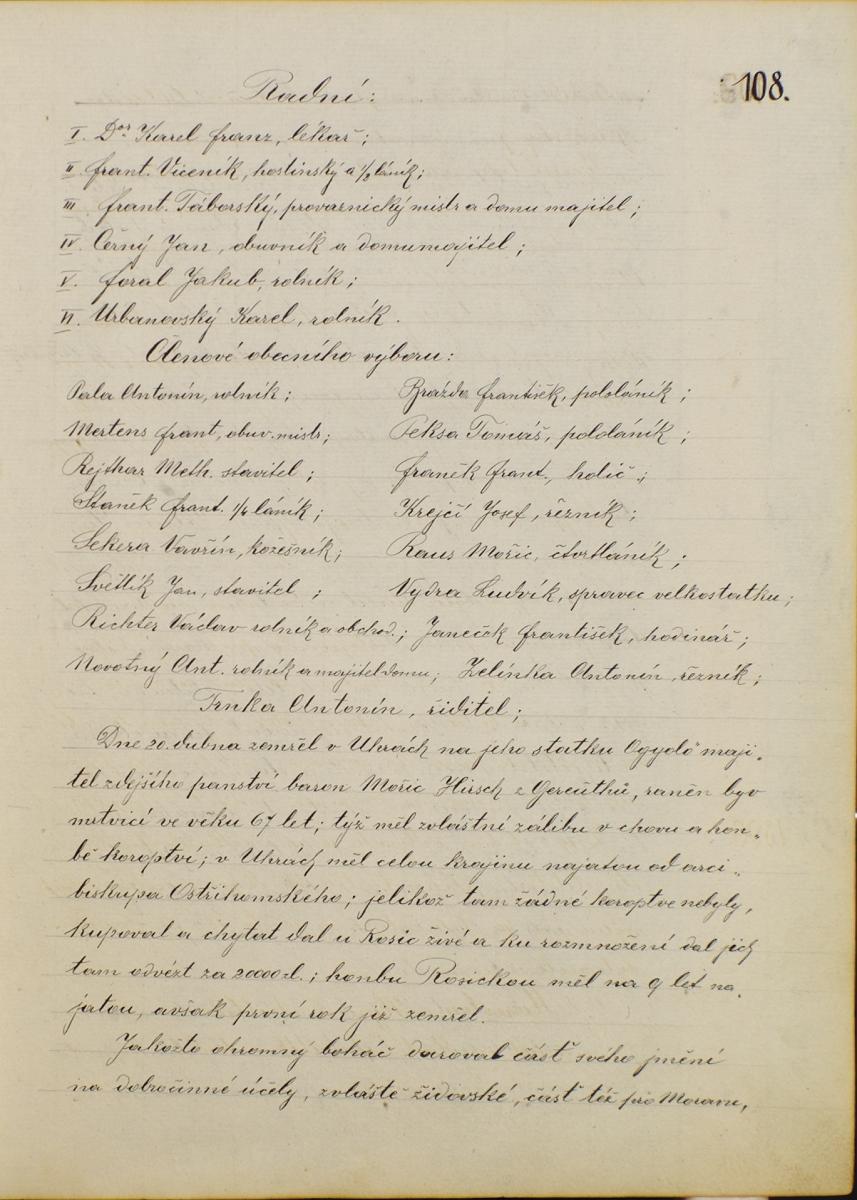 108.
Radní:
I. Dor. Karel Franz, lékař;
II. Frant. Viceník, hostinský a 1/2 láník;
III Frant. Táborský, provaznický mistr a domu majitel;
IV. Černý Jan, obuvník a domumajitel;
V. Foral Jakub, rolník;
VI. Urbanovský Karel, rolník.
Členové obecního výboru:
Pala Antonín, rolník; Brázda František, pololáník;
Mertens Frant, obuv. mistr; Peksa Tomáš, pololáník;
Rejthar Meth. stavitel; Franěk Frant., holič;
Staněk Frant. 1/4 láník; Krejčí Josef, řezník;
Sekera Vavřín, kožešník; Raus Mořic, čtvrtláník;
Světlík Jan, stavitel; Vydra Ludvík, spravec velkostatku;
Richter Václav rolník a obchod.; Janeček František, hodinář;
Novotný Ant. rolník a majitel domu; Zelinka Antonín, řezník;
Trnka Antonín, řiditel;
Dne 20. dubna zemřel v Uhrách na jeho statku Ogyaló maji„
tel zdejšího panství baron Mořic Hirsch z Gereuthů, raněn byv
mrtvicí ve věku 67 let; týž měl zvláštní zálibu v chovu a hon„
bě koroptví; v Uhrách měl celou krajinu najatou od arci„
biskupa Ostřihomského; jelikož tam žádné koroptve nebyly,
kupoval a chytat dal u Rosic živé a ku rozmnožení dal jich
tam odvézt za 20000 zl.; honbu Rosickou měl na 9 let na„
jatou, avšak první rok již zemřel.
Jakožto ohromný boháč daroval část svého jmění
na dobročinné účely, zvláště židovské, část též pro Moravu,